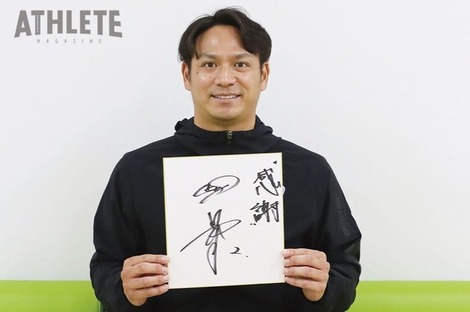 ATHLETE
MAGAZINE
"感謝"
2.